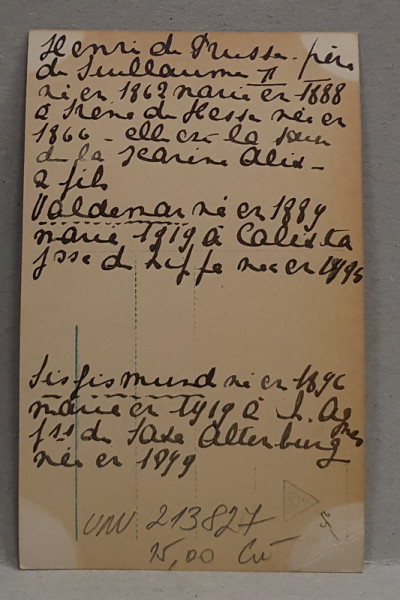 Henri de Prusse. père
de Guillaume II
né en 1862 marié en 1888
à Irène de Hesse née en
1866 - elle est la sœur
de la Tzarine Alix -
2 fils
Valdemar né en 1889
marié 1919 à Calixta
Psse de Lippe née en 1895
Sigismund né en 1896
marié en 1919 à Ch. Agnes
Pss de Saxe Altenburg
née en 1899
213827
15,00